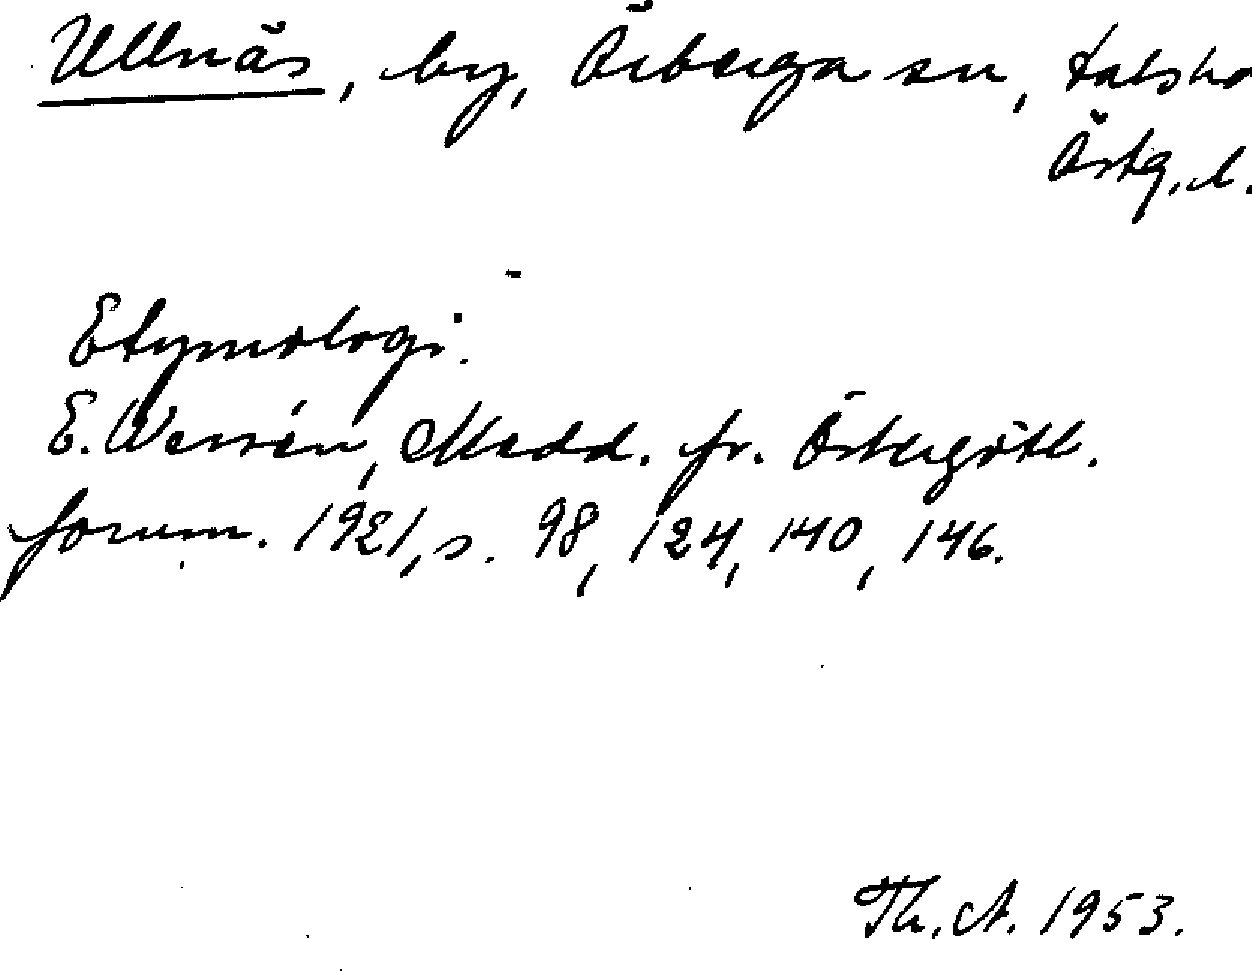 Ullnäs, by, Örberga sn, Dals hd
Östg. l.
Etymologi.
E. Wessén, Medd. fr. Östergötl.
fornm. 1921, s. 98, 124, 140, 146.
Th. A. 1953.